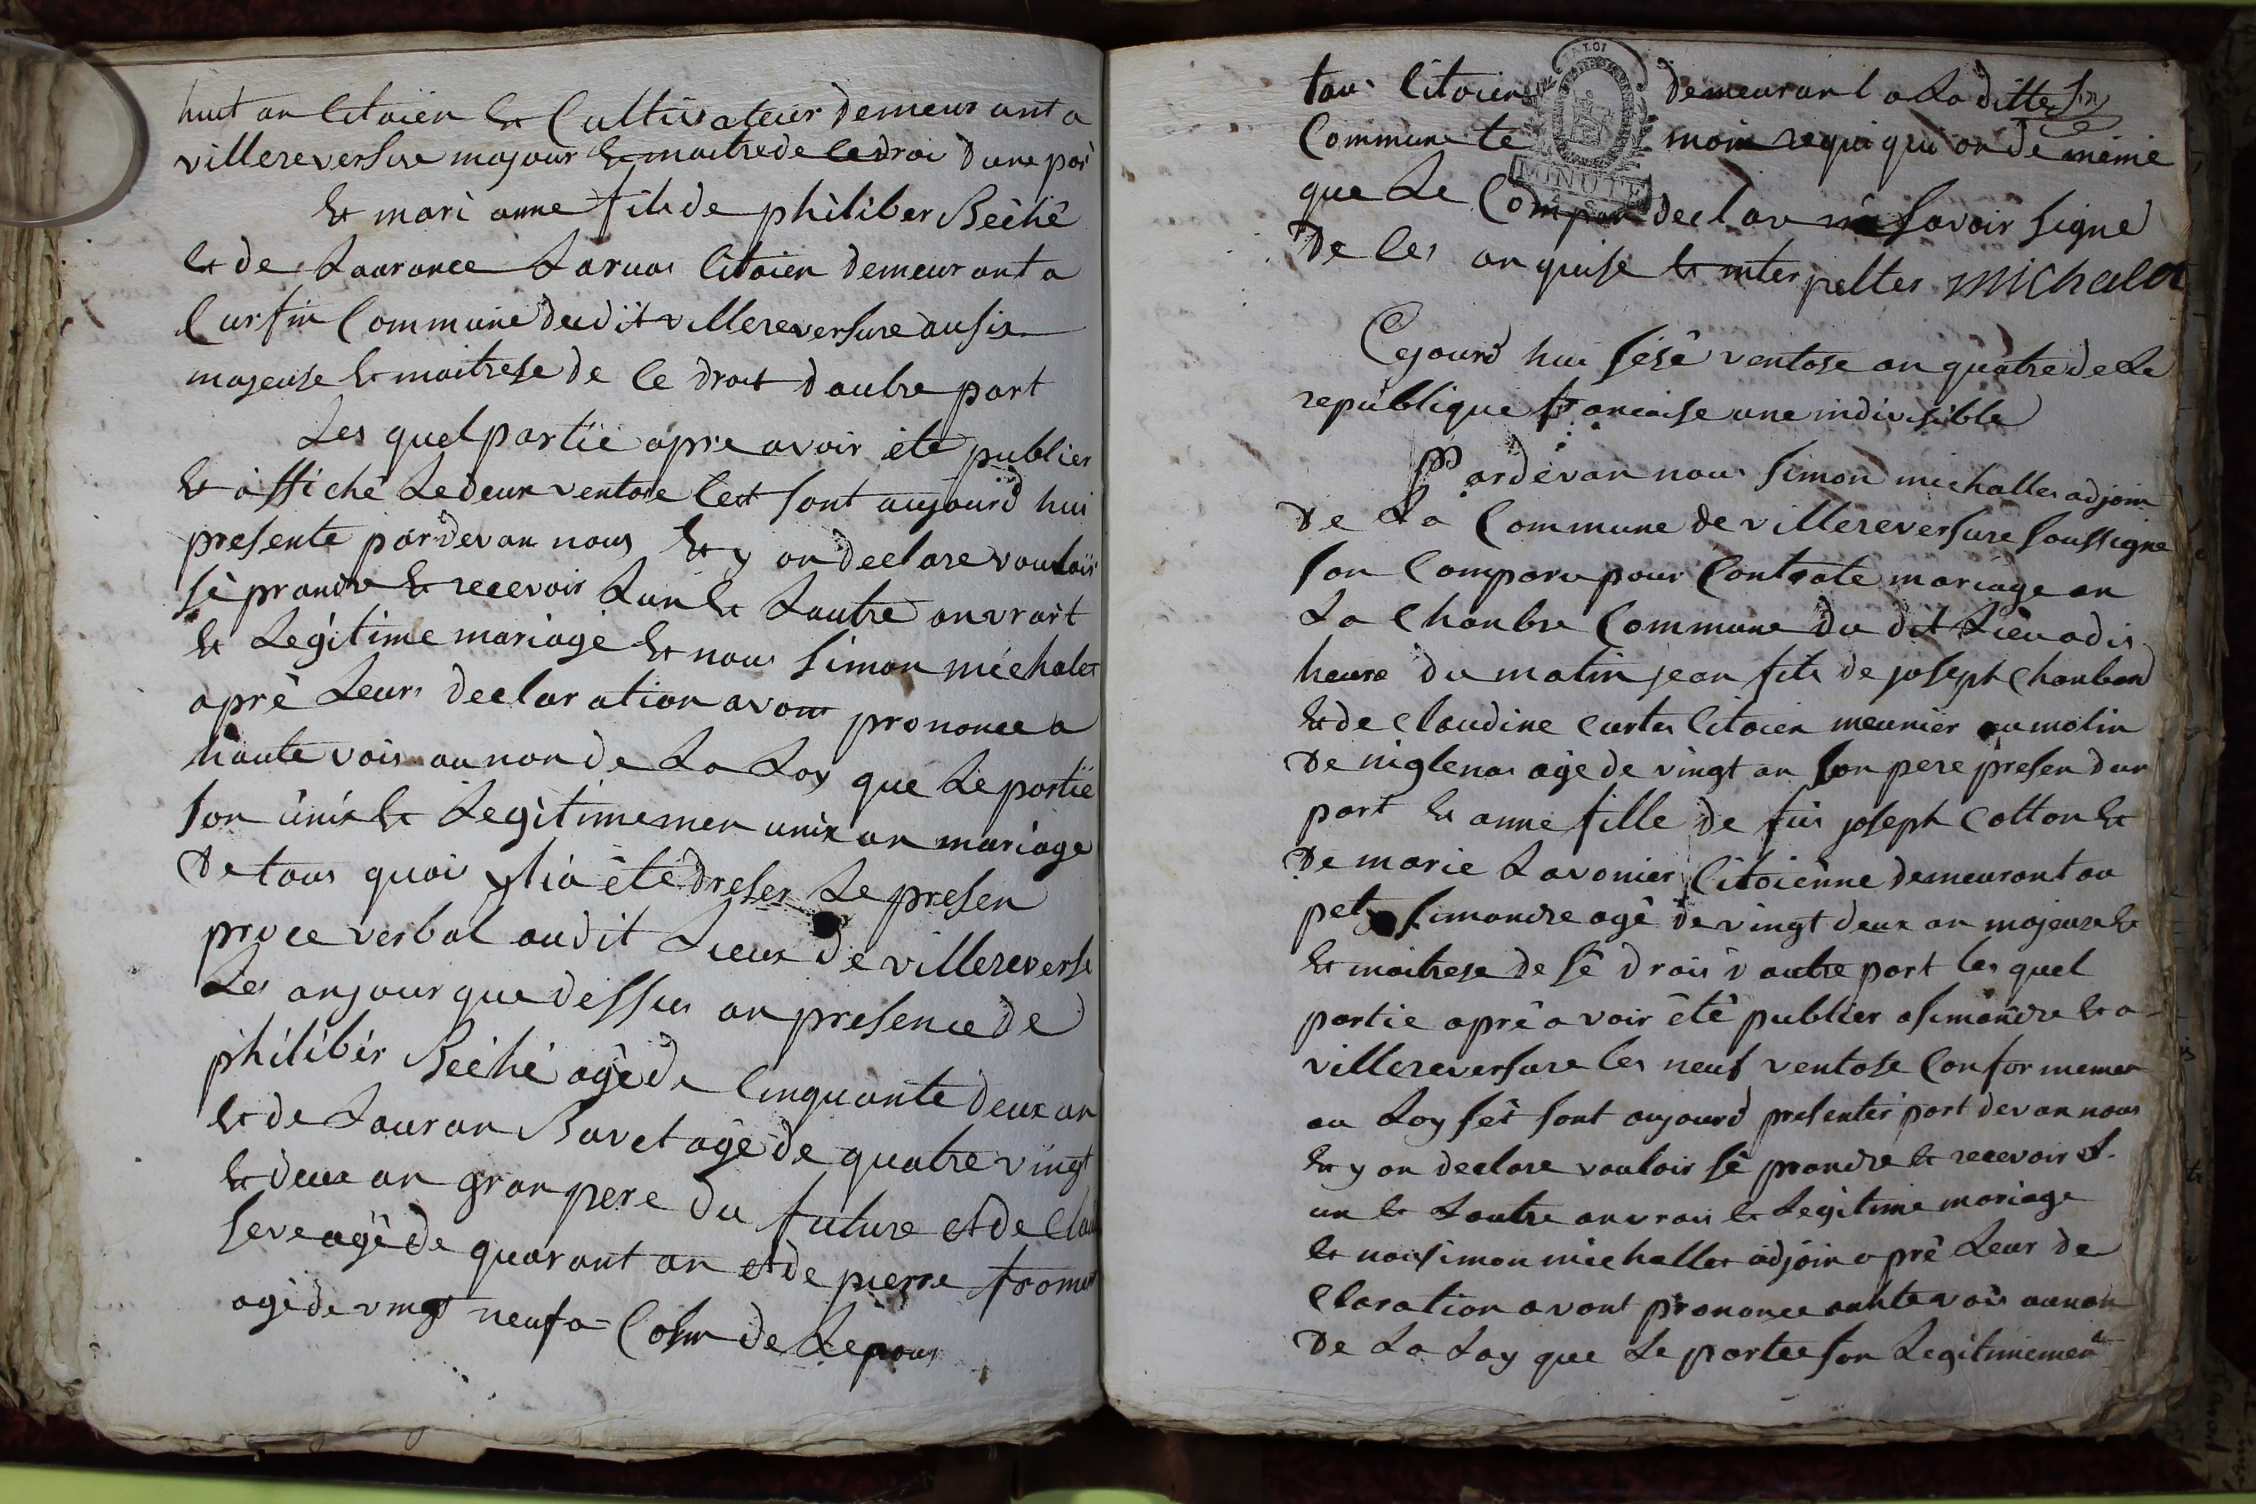 huit an Citoien & Cultivateur demeurant a
villereversure majour & maitre de ce droi dune par
& mari anne file de philiber Beché
& de Laurance Laruas Citoien demeurant a
Cursin Commune dudit villereversure ausis
majeuse & maitrese de ce droit dautre part
Les quel partie apre avoir été publier
& affiché Le deux ventose cest sont aujourd hui
presente pardevan nous & y on declare vouloir
se prandre & recevoir Lun & Lautre an vrait
& Legitime mariage & nous Simon mechalet
aprê Leurs declaration avont prononce a
haute vois au non de La Loy que Le partie
son unix & Legitimemen unix an mariage
De tous quoi ylia été dreser Le presen
proce verbal audit Lieux de villereverse
Les an jour que dessus an presence de
philibér Beché agê de Cinquante deux an
& de Lauran Buvet age de quatre vingt
& deux an gran pere du future et de Clau
seve agê de quarant an et de pierre froment
agê de vingt neuf a Cosin de Lepous
tous Citoien demeurant a La ditte
Commune te moin requi qui on de même
que Le Compar declar na savoir signé
De Les an quise & interpelter michalet
Cejourd hui sésê ventose an quatre de La
republique francaise une indivisible
Pardevan nous Simon michalles adjoin
De La Commune de villereversure soussigne
son Comparu pour Contrate mariage an
La Chanbre Commune du dit Liêu a dis
heure du matin jean fils de joseph Chanbard
& de Claudine Curtes Citoien meunier au molin
De niglenas age de vingt an son pere presen dun
part & anne fille de fuis joseph Cotton &
De marie Lavonier Citoiènne demeurant au
petz Simandre agê de vingt deux an majeuze &
& maitrese de sê drois d autre part les quel
partie aprê avoir êtê publier a simandre & a
villereversure les neuf ventose Conformemen
au Loy sét sont aujourd presenter part devan nous
& y on declare vouloir sê prandre & recevoir L
un & Lautre an vrais & Legitime mariage
& nous simon michalles adjoin aprê Leur de
Claration avont prononce aute vois au non
De La Loy que Le partee son Legitimemen